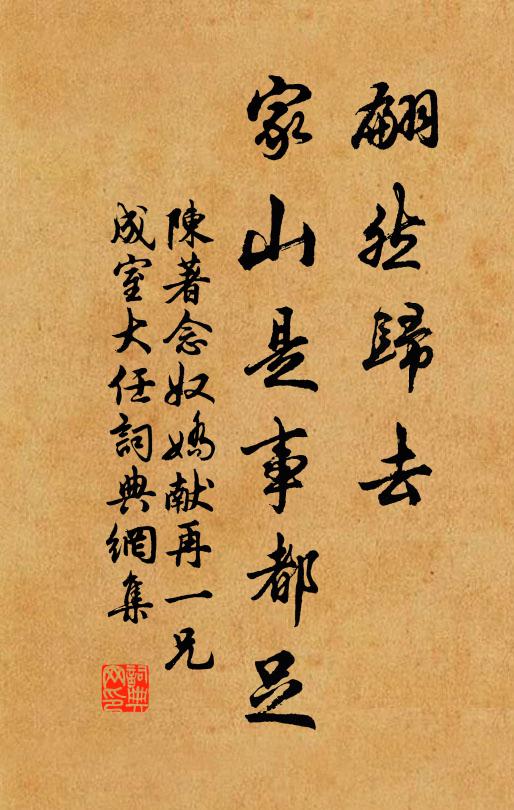 翩然歸去
家山是事都足
陳著念奴嬌献再一兄
成室大任詞典網集
詞典網印